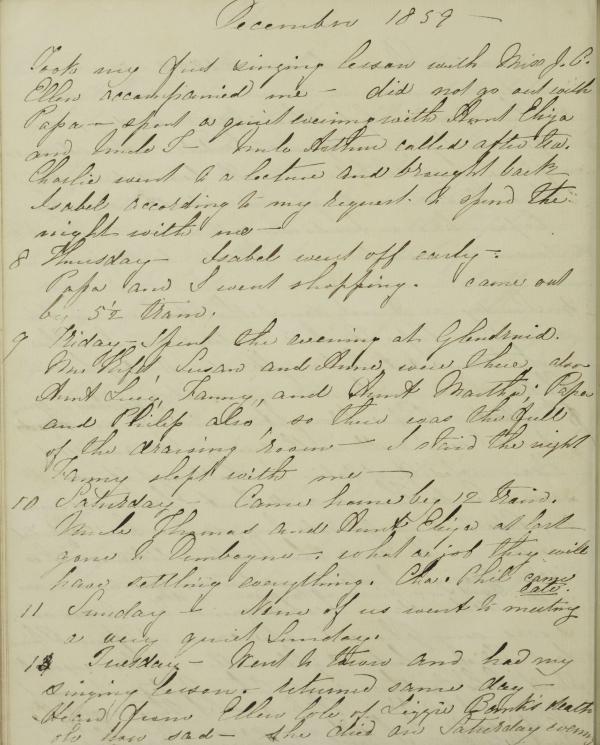 December 1859 —
Took my first singing lesson with Miss J. C.
Ellen accompanied me — did not go out with
Papa — spent a quiet evening with Aunt Eliza
and Uncle T — Uncle Arthur called after tea.
Charlie went to a lecture and brought back
Isabel according to my request to spend the
night with me —
8 Thursday — Isabel went off early —.
Papa and I went shopping. came out
by 5½ train.
9 Friday — Spent the evening at Glendruid.
Mrs Susan and Anne were there, also
Aunt Lucy, Fanny, and Aunt Martha; Papa
and Philip also, so there was the full
of the drawing room — I staid the night
Fanny slept with me —
10 Saturday — Came home by 12 train.
Uncle Thomas and Aunt Eliza at last
gone to Dunboyne —. what a job they will
have settling everything. Cha. Phil came
late.
11 Sunday — None of us went to meeting
a very quiet Sunday.
13 Tuesday — Went to town and had my
singing lesson — returned same day —
Heard from Ellen of Lizzie death
oh how sad — she died on Saturday evening